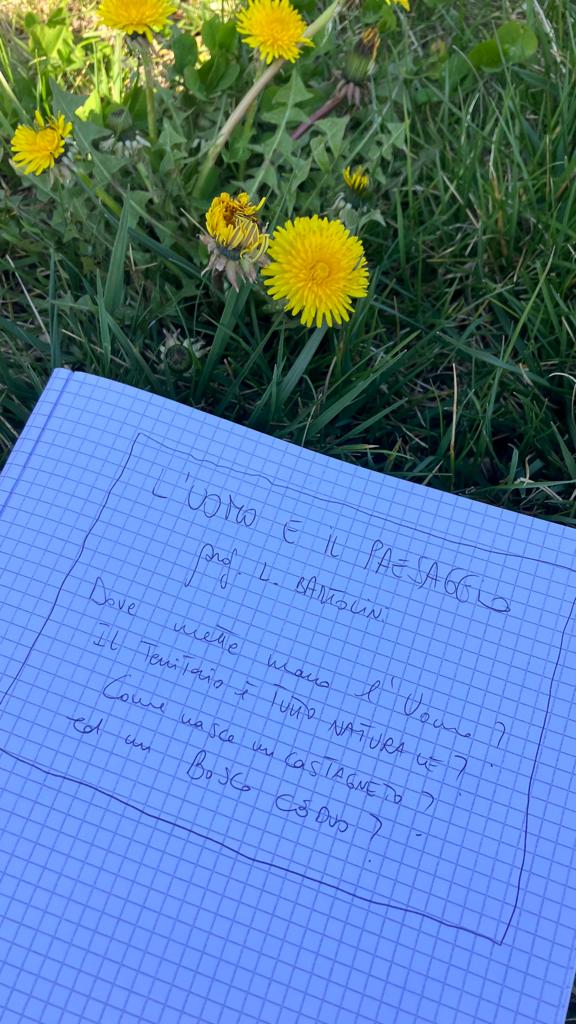 L'UOMO E IL PAESAGGIO
prof. L. BARTOLIN
Dove mette mano l'Uomo?
Il Territorio è TUTTO NATURALE?
Come nasce un CASTAGNETO?
ed un BOSCO CEDUO?